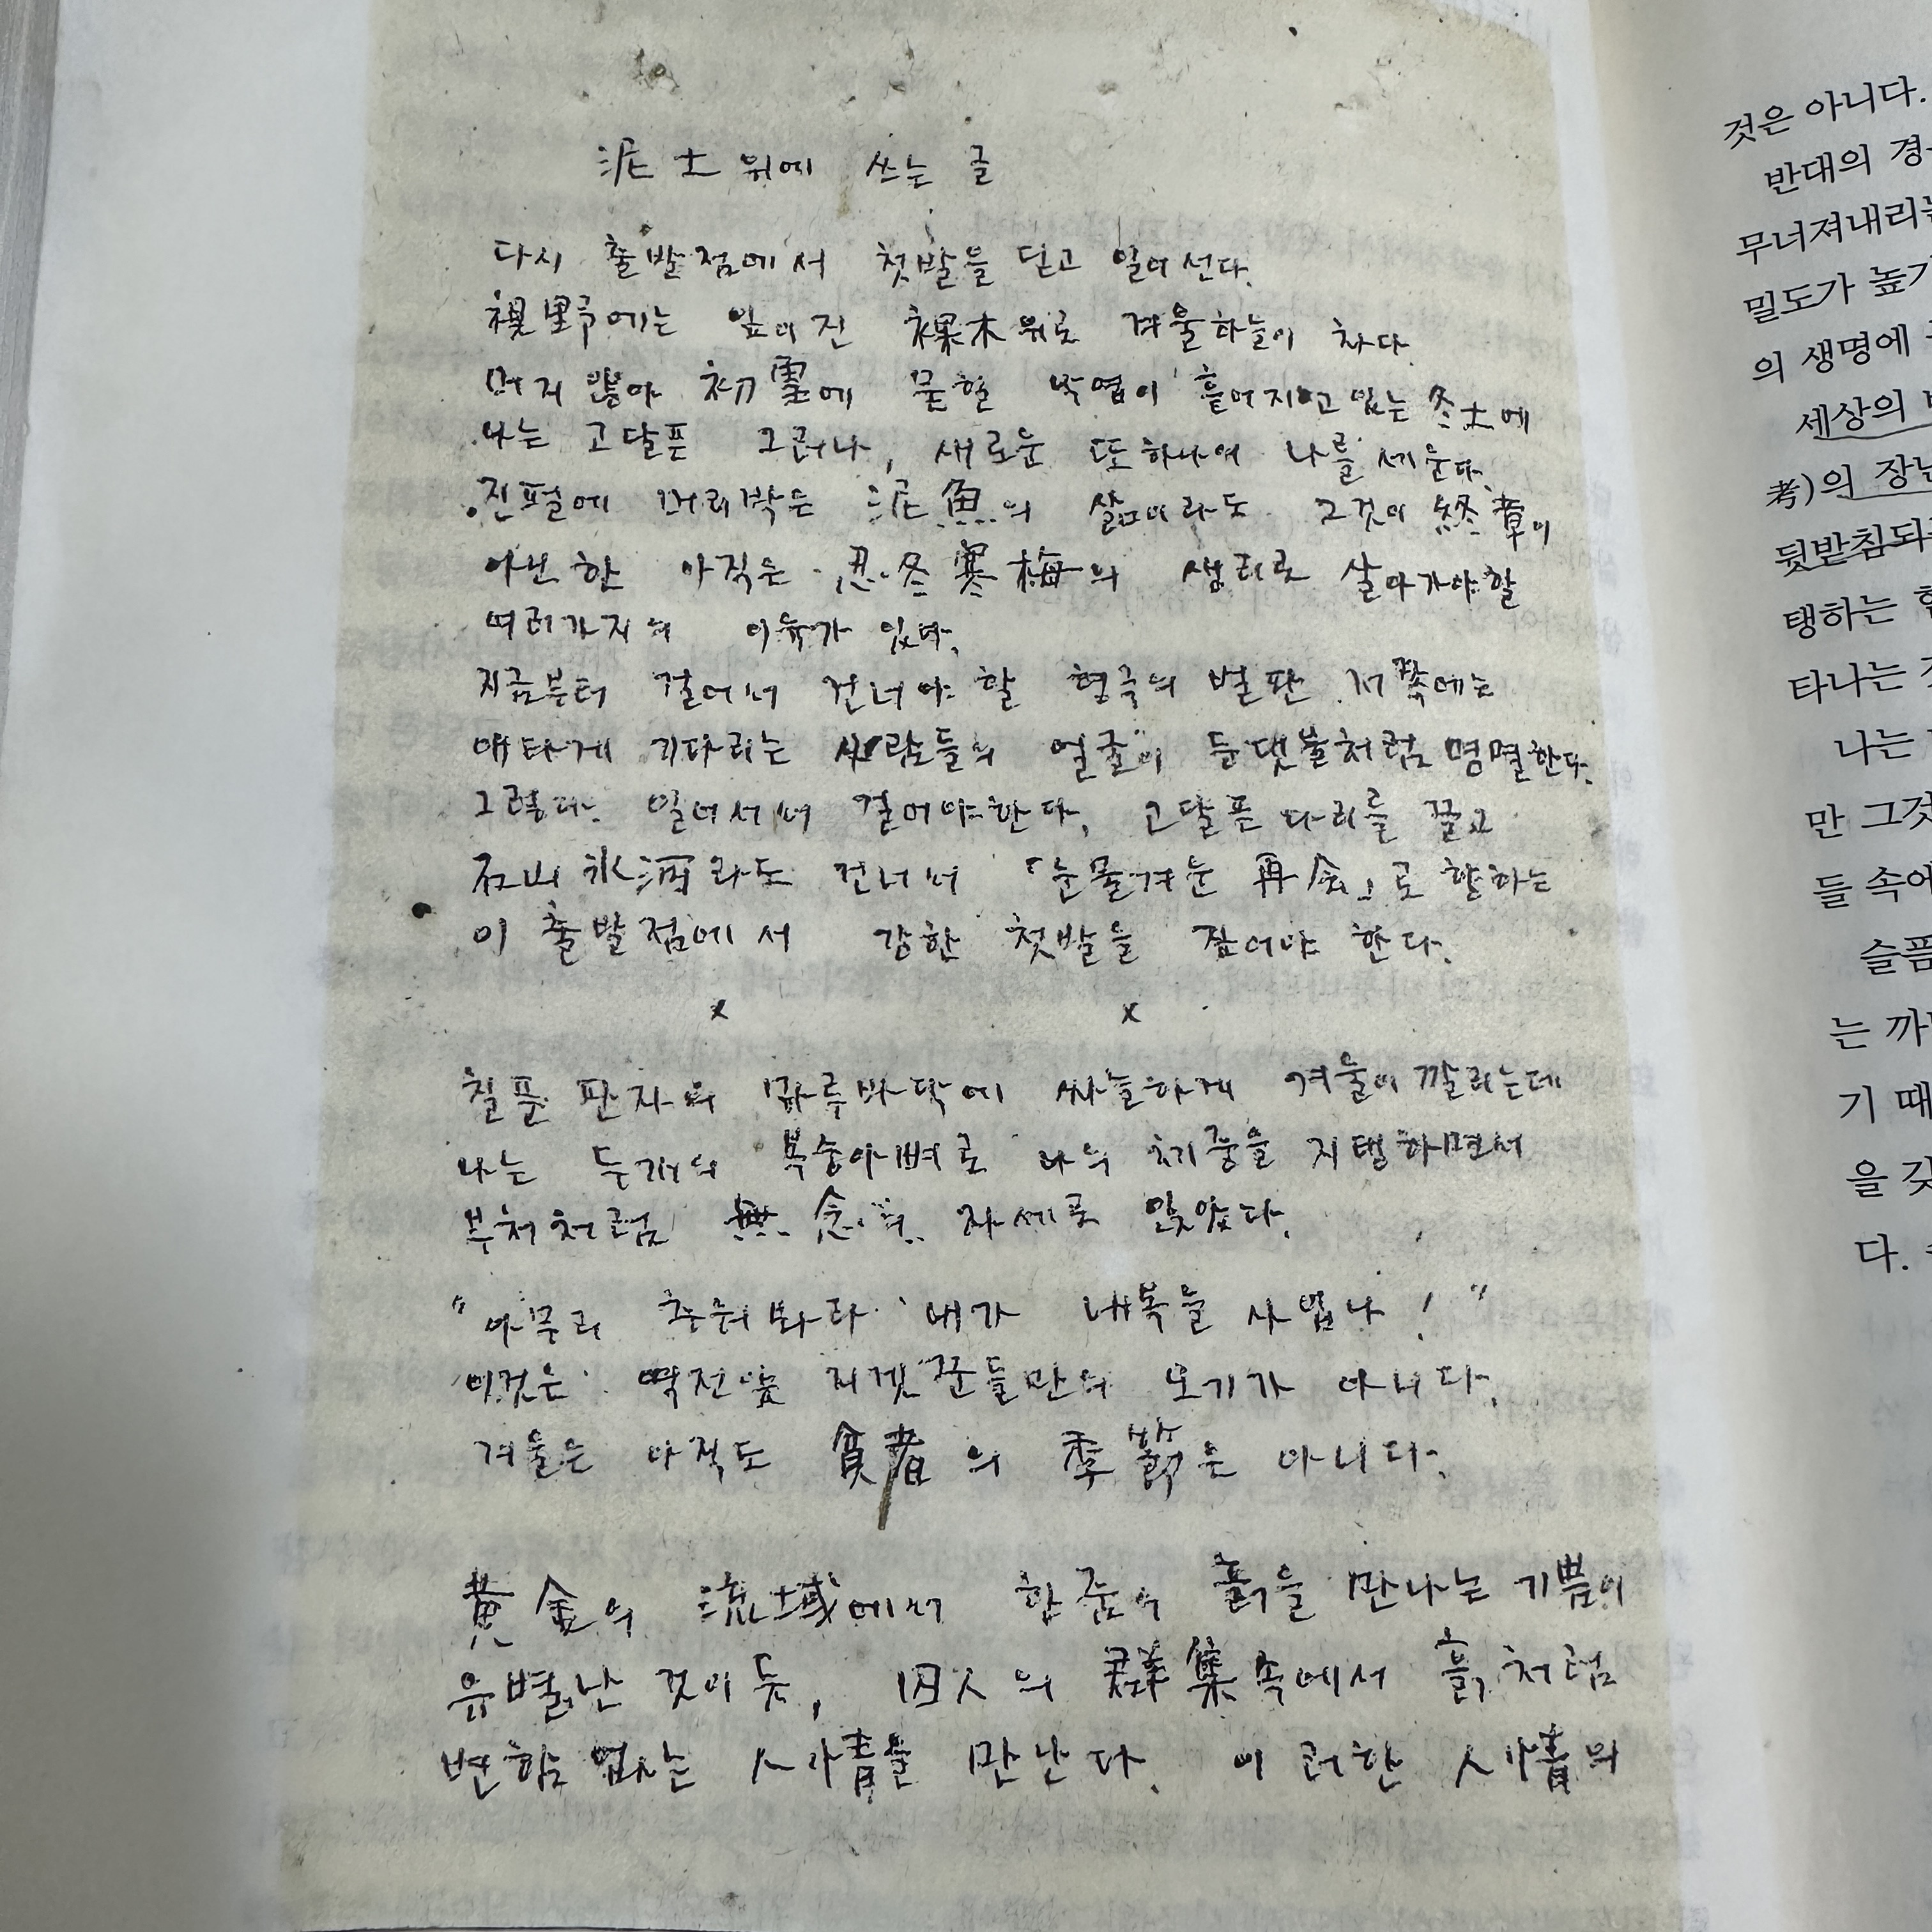 泥土 위에 쓰는 글
다시 출발점에서 첫발을 딛고 일어선다.
裸野에는 잎이 진 裸木위로 겨울하늘이 차다.
머지 않아 初雪에 묻힐 낙엽이 흩어지고 있는 冬土에
나는 고달픈 그러나, 새로운 또하나의 나를 세운다.
진펄에 머리박은 泥魚의 삶이라도 그것이 終章이
아닌한 아직은 忍冬寒梅의 생리로 살아가야할
여러가지의 이유가 있다.
지금부터 걸어서 건너야 할 형극의 벌판 저쪽에는
애타게 기다리는 사람들의 얼굴이 등댓불처럼 명멸한다.
그렇다. 일어서서 걸어야한다. 고달픈 다리를 끌고
石山氷河라도 건너서 「눈물겨운 再会」로 향하는
이 출발점에서 강한 첫발을 잡어야 한다.
x x
칠푼 판자의 마루바닥에 싸늘하게 겨울이 깔리는데
나는 두개의 복숭아뼈로 나의 체중을 지탱하면서
부처처럼 無念의 자세로 앉았다.
"아무리 추워봐라 내가 내복을 사입나 ! "
이것은 역전앞 지겟꾼들만의 오기가 아니다.
겨울은 아직도 貧者의 季節은 아니다.
黄金의 流域에서 한줌의 흙을 만나는 기쁨이
유별난 것이듯, 囚人의 群集속에서 흙처럼
변함 없는 人情을 만난다. 이러한 人情의
것은 아니다.
반대의
무너져내리는
밀도가
의 생명에
세상의
考)의
뒷받침되
탱하는
타나는
나는
만 그것
들 속에
슬픔
는
기 때
을
다.